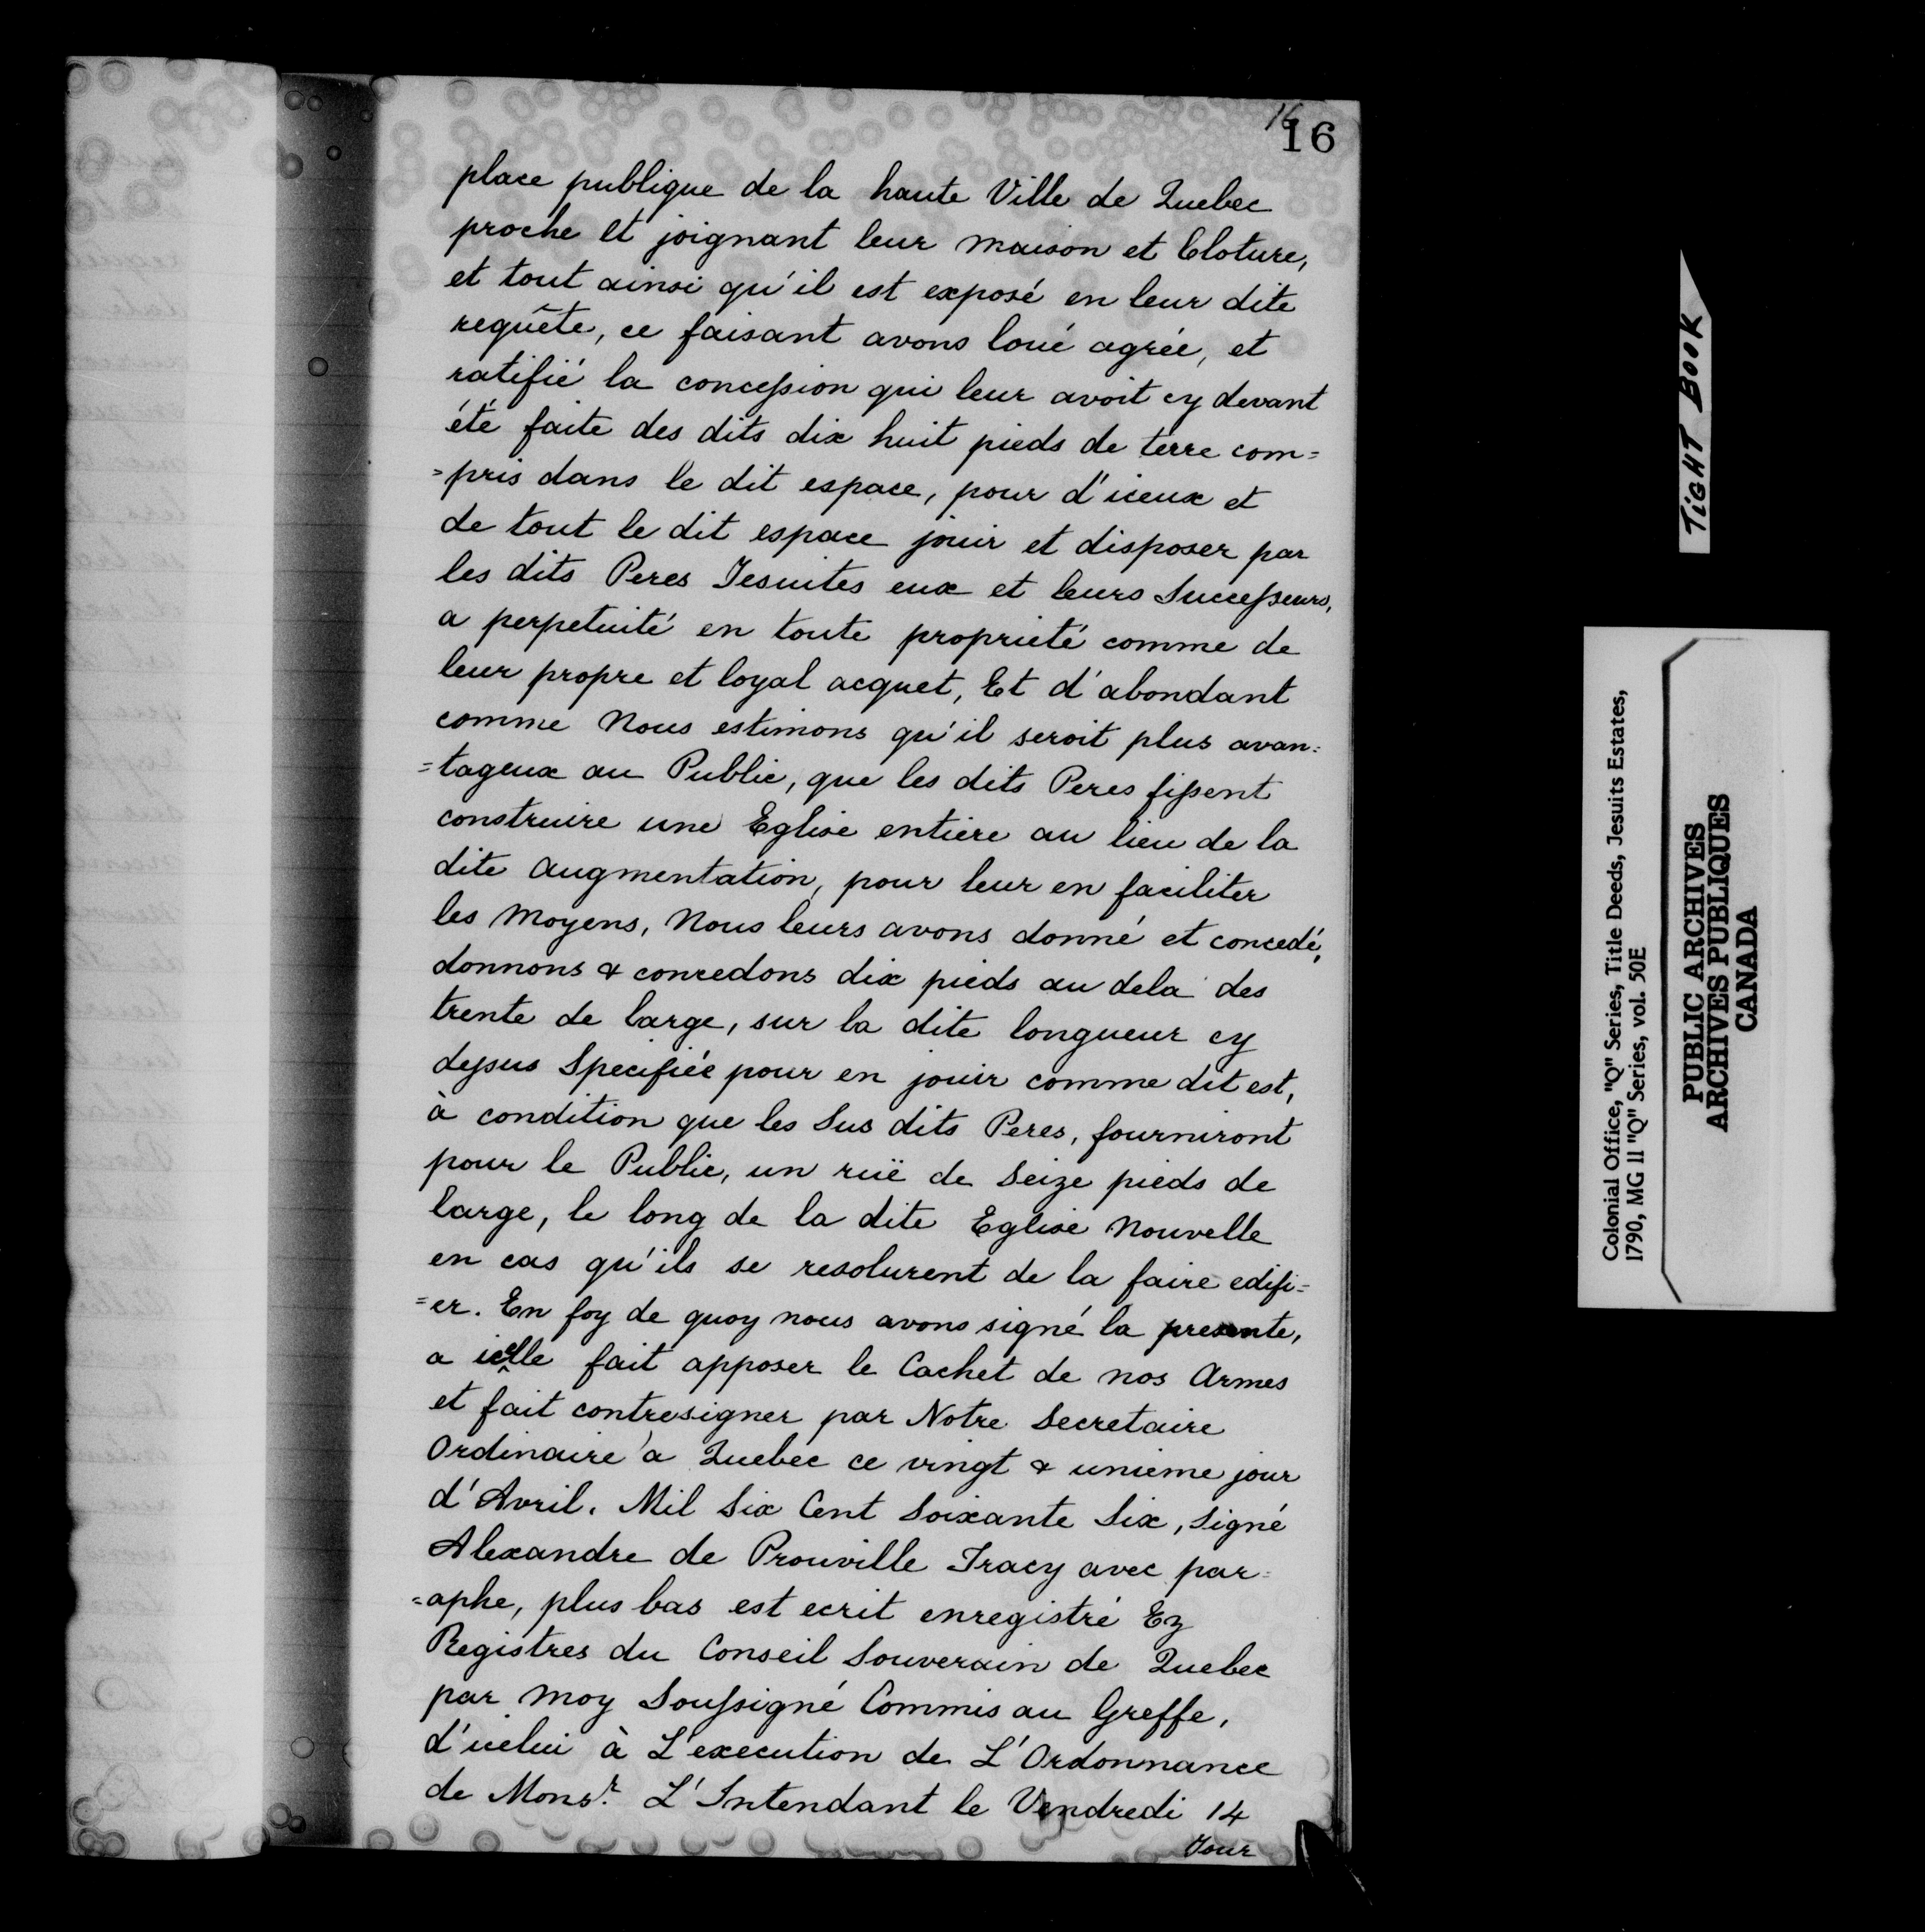 16
16
place publique de la haute Ville de Quebec
proche et joignant leur maison et Cloture,
et tout ainsi qu'il est exposé en leur dite
requête, ce faisant avons loué agréé, et
ratifié la concession qui leur avoit cy devant
été faite des dits dix huit pieds de terre com=
=pris dans le dit espace, pour d'iceux et
de tout le dit espace jouir et disposer par
les dits Peres Jesuites eux et leurs Successeurs,
a perpetuité en toute proprieté comme de
leur propre et loyal acquet, Et d'abondant
comme Nous estimons qu'il seroit plus avan=
=tageux au Public, que les dits Peres fissent
construire une Eglise entiere au lieu de la
dite augmentation, pour leur en faciliter
les Moyens, Nous leurs avons donné et concedé,
donnons & concedons dix pieds au dela des
trente de large, sur la dite longueur cy
dessus Specifiée pour en jouir comme dit est,
à condition que les Sus dits Peres, fourniront
pour le Public, un ruë de Seize pieds de
large, le long de la dite Eglise Nouvelle
en cas qu'ils se resolurent de la faire edifi=
=er. En foy de quoy nous avons signé la presente,
a icelle fait apposer le Cachet de nos Armes
et fait contresigner par Notre Secretaire
Ordinaire a Quebec ce vingt & unieme jour
d'Avril. Mil Six Cent Soixante Six, Signé
Alexandre de Prouville Tracy avec par=
=aphe, plus bas est ecrit enregistré Ez
Registres du Conseil Souverain de Quebec
par Moy Soussigné Commis au Greffe,
d'icelui à L'execution de L'Ordonnance
de Monsr. L'Intendant le Vendredi 14
Jour
TiGHT BOOK
Colonial Office, "Q" Series, Title Deeds, Jesuits Estates,
1790, MG 11 "Q" Series, vol. 50E
PUBLIC ARCHIVES
ARCHIVES PUBLIQUES
CANADA